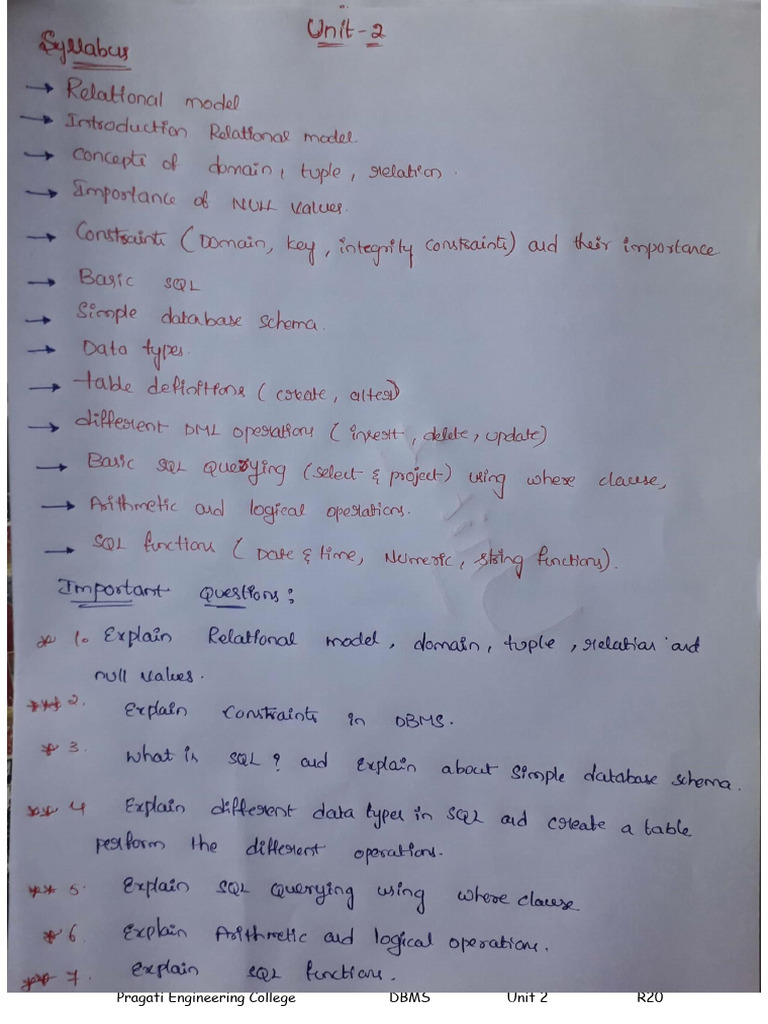 Unit-2
Syllabus
→ Relational model
→ Introduction Relational model.
→ concepts of domain, tuple, relation.
→ Importance of NULL values.
→ Constraints (Domain, key, integrity constraints) and their importance
→ Basic SQL
→ Simple database schema.
→ Data types.
→ table definitions (create, alter)
→ different DML operations (insert, delete, update)
→ Basic SQL Querying (select & project) using where clause,
→ Arithmetic and logical operations.
→ SQL functions (Date & time, Numeric, string functions).
Important Questions:
* 1. Explain Relational model, domain, tuple, relation and
null values.
*** 2. Explain constraints in DBMS.
* 3. What is SQL? and Explain about Simple database schema.
** 4 Explain different data types in SQL and create a table
perform the different operations.
** 5. Explain SQL Querying using where clause
* 6. Explain Arithmetic and logical operations.
*** 7. Explain SQL functions.
Pragati Engineering College DBMS Unit 2 R20